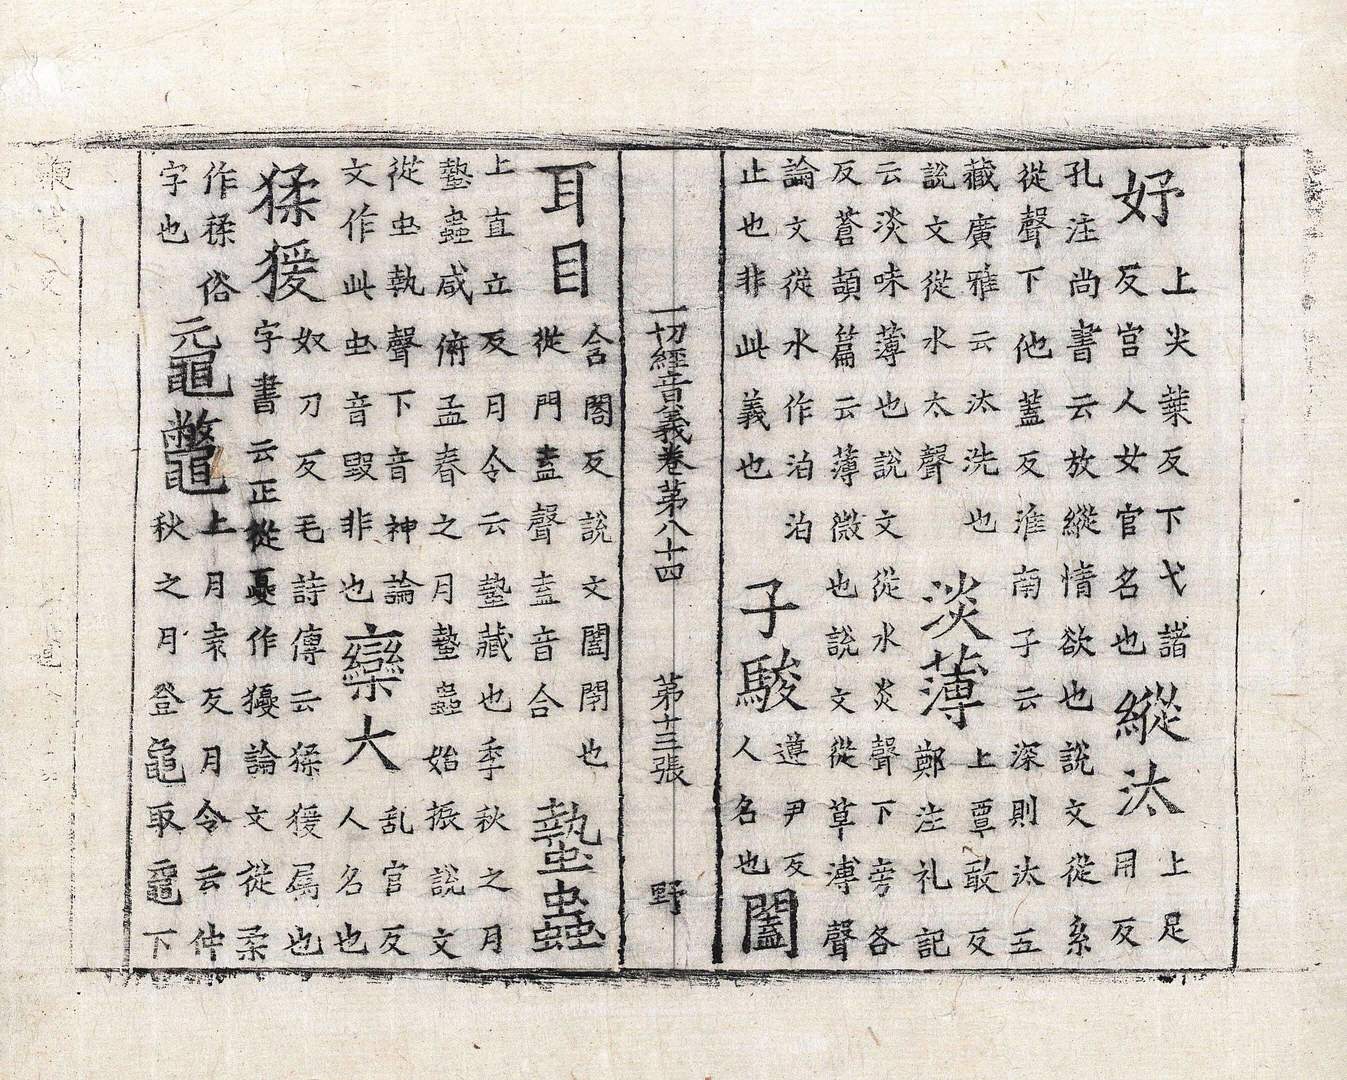 妤
上尖葉反下弋諸
反宮人女官名也
縱汰
上足
用反
孔注尚書云放縱情欲也說文從系
從聲下他蓋反淮南子云深則汰五
藏廣雅云汰洗也
說文從水太聲
淡薄
上覃敢反
鄭注礼記
云淡味薄也說文從水炎聲下旁各
反蒼頡篇云薄微也說文從草溥聲
論文從水作泊泊
止也非此義也
子駿
遵尹反
人名也
闔
一切經音義卷第八十四 第十三張 野
耳目
含閤反說文闔閇也
從門盍聲盍音合
蟄蟲
上直立反月令云蟄藏也季秋之月
蟄蟲咸俯孟春之月蟄蟲始振說文
從虫執聲下音神論
文作此虫音毀非也
欒大
乱官反
人名也
猱猨
奴刀反毛詩傳云猱猨屬也
字書云正從憂作獶論文從柔
作猱俗
字也
黿鼈
上月袁反月令云仲
秋之月登龜取黿下